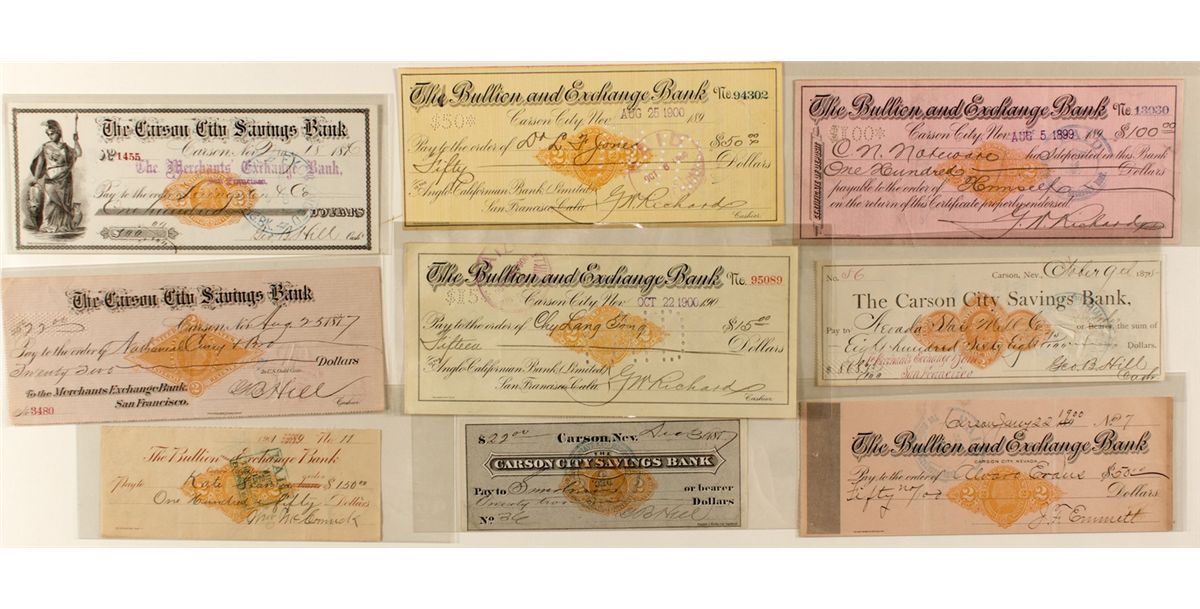 The Carson City Savings Bank
No 1455
Carson, Nev
The Merchants' Exchange Bank,
San Francisco
Pay to the order
& Co
One Hundred
DOLLARS
$100 00
Geo. B. Hill Cash.
The Bullion and Exchange Bank No. 94302
Carson City, Nev. AUG 25 1900 189
$50*
Pay to the order of Dr L. F. Jones $50 00
Fifty Dollars
To Anglo Californian Bank Limited
San Francisco, Cala. G. W. Richard
Cashier.
The Bullion and Exchange Bank No. 13930
Carson City, Nev. AUG 5 1899 189 $100 00
$100*
has deposited in this Bank
One Hundred Dollars
payable to the order of Himself
on the return of this Certificate properly endorsed.
CERTIFICATE OF DEPOSIT
G. W. Richard
The Carson City Savings Bank
$22 00 Carson, Nev Aug 25 1877
Pay to the order of Nathaniel & Bro
Twenty two Dollars
To the Merchants Exchange Bank.
San Francisco.
No 3480
G B Hill
Cashier
The Bullion and Exchange Bank No. 95089
$15*
Carson City, Nev. OCT 22 1900 190
Pay to the order of Chy Lang Tong $15 00
Fifteen Dollars
To Anglo Californian Bank Limited
San Francisco, Cala. G. W. Richard
Cashier.
No. 86 Carson, Nev. October 9th 1878
The Carson City Savings Bank,
Pay to Nevada Mill Co or Bearer, the sum of
Eight hundred Sixty Eight Dollars.
Merchants Exchange Bank
San Francisco
Geo. B. Hill
Cash
No 11
The Bullion & Exchange Bank
Pay to Kate or order $150 00
One Hundred & Fifty Dollars
Wm McCormick
$22 00 Carson, Nev. Dec 3 1877
THE
CARSON CITY SAVINGS BANK
Pay to or bearer
Twenty two Dollars
No. 36 G B Hill
Carson Jany 22 1900 No 7
The Bullion and Exchange Bank
CARSON CITY, NEVADA
Pay to the order of Alvaro Evans $50 00
Fifty no/100 Dollars
J. F. Emmitt